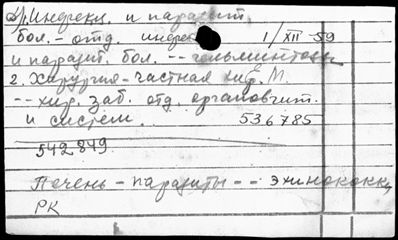 1) Инфекц. и паразит.
бол. - отд. инфек 1/XII-59
и паразит. бол. -- гельминтозы
2. Хирургия - частная Е. М.
-- хир. заб. отд. органов чит.
и систем. 536785
542849.
Печень - паразиты -- эхинококк,
РК